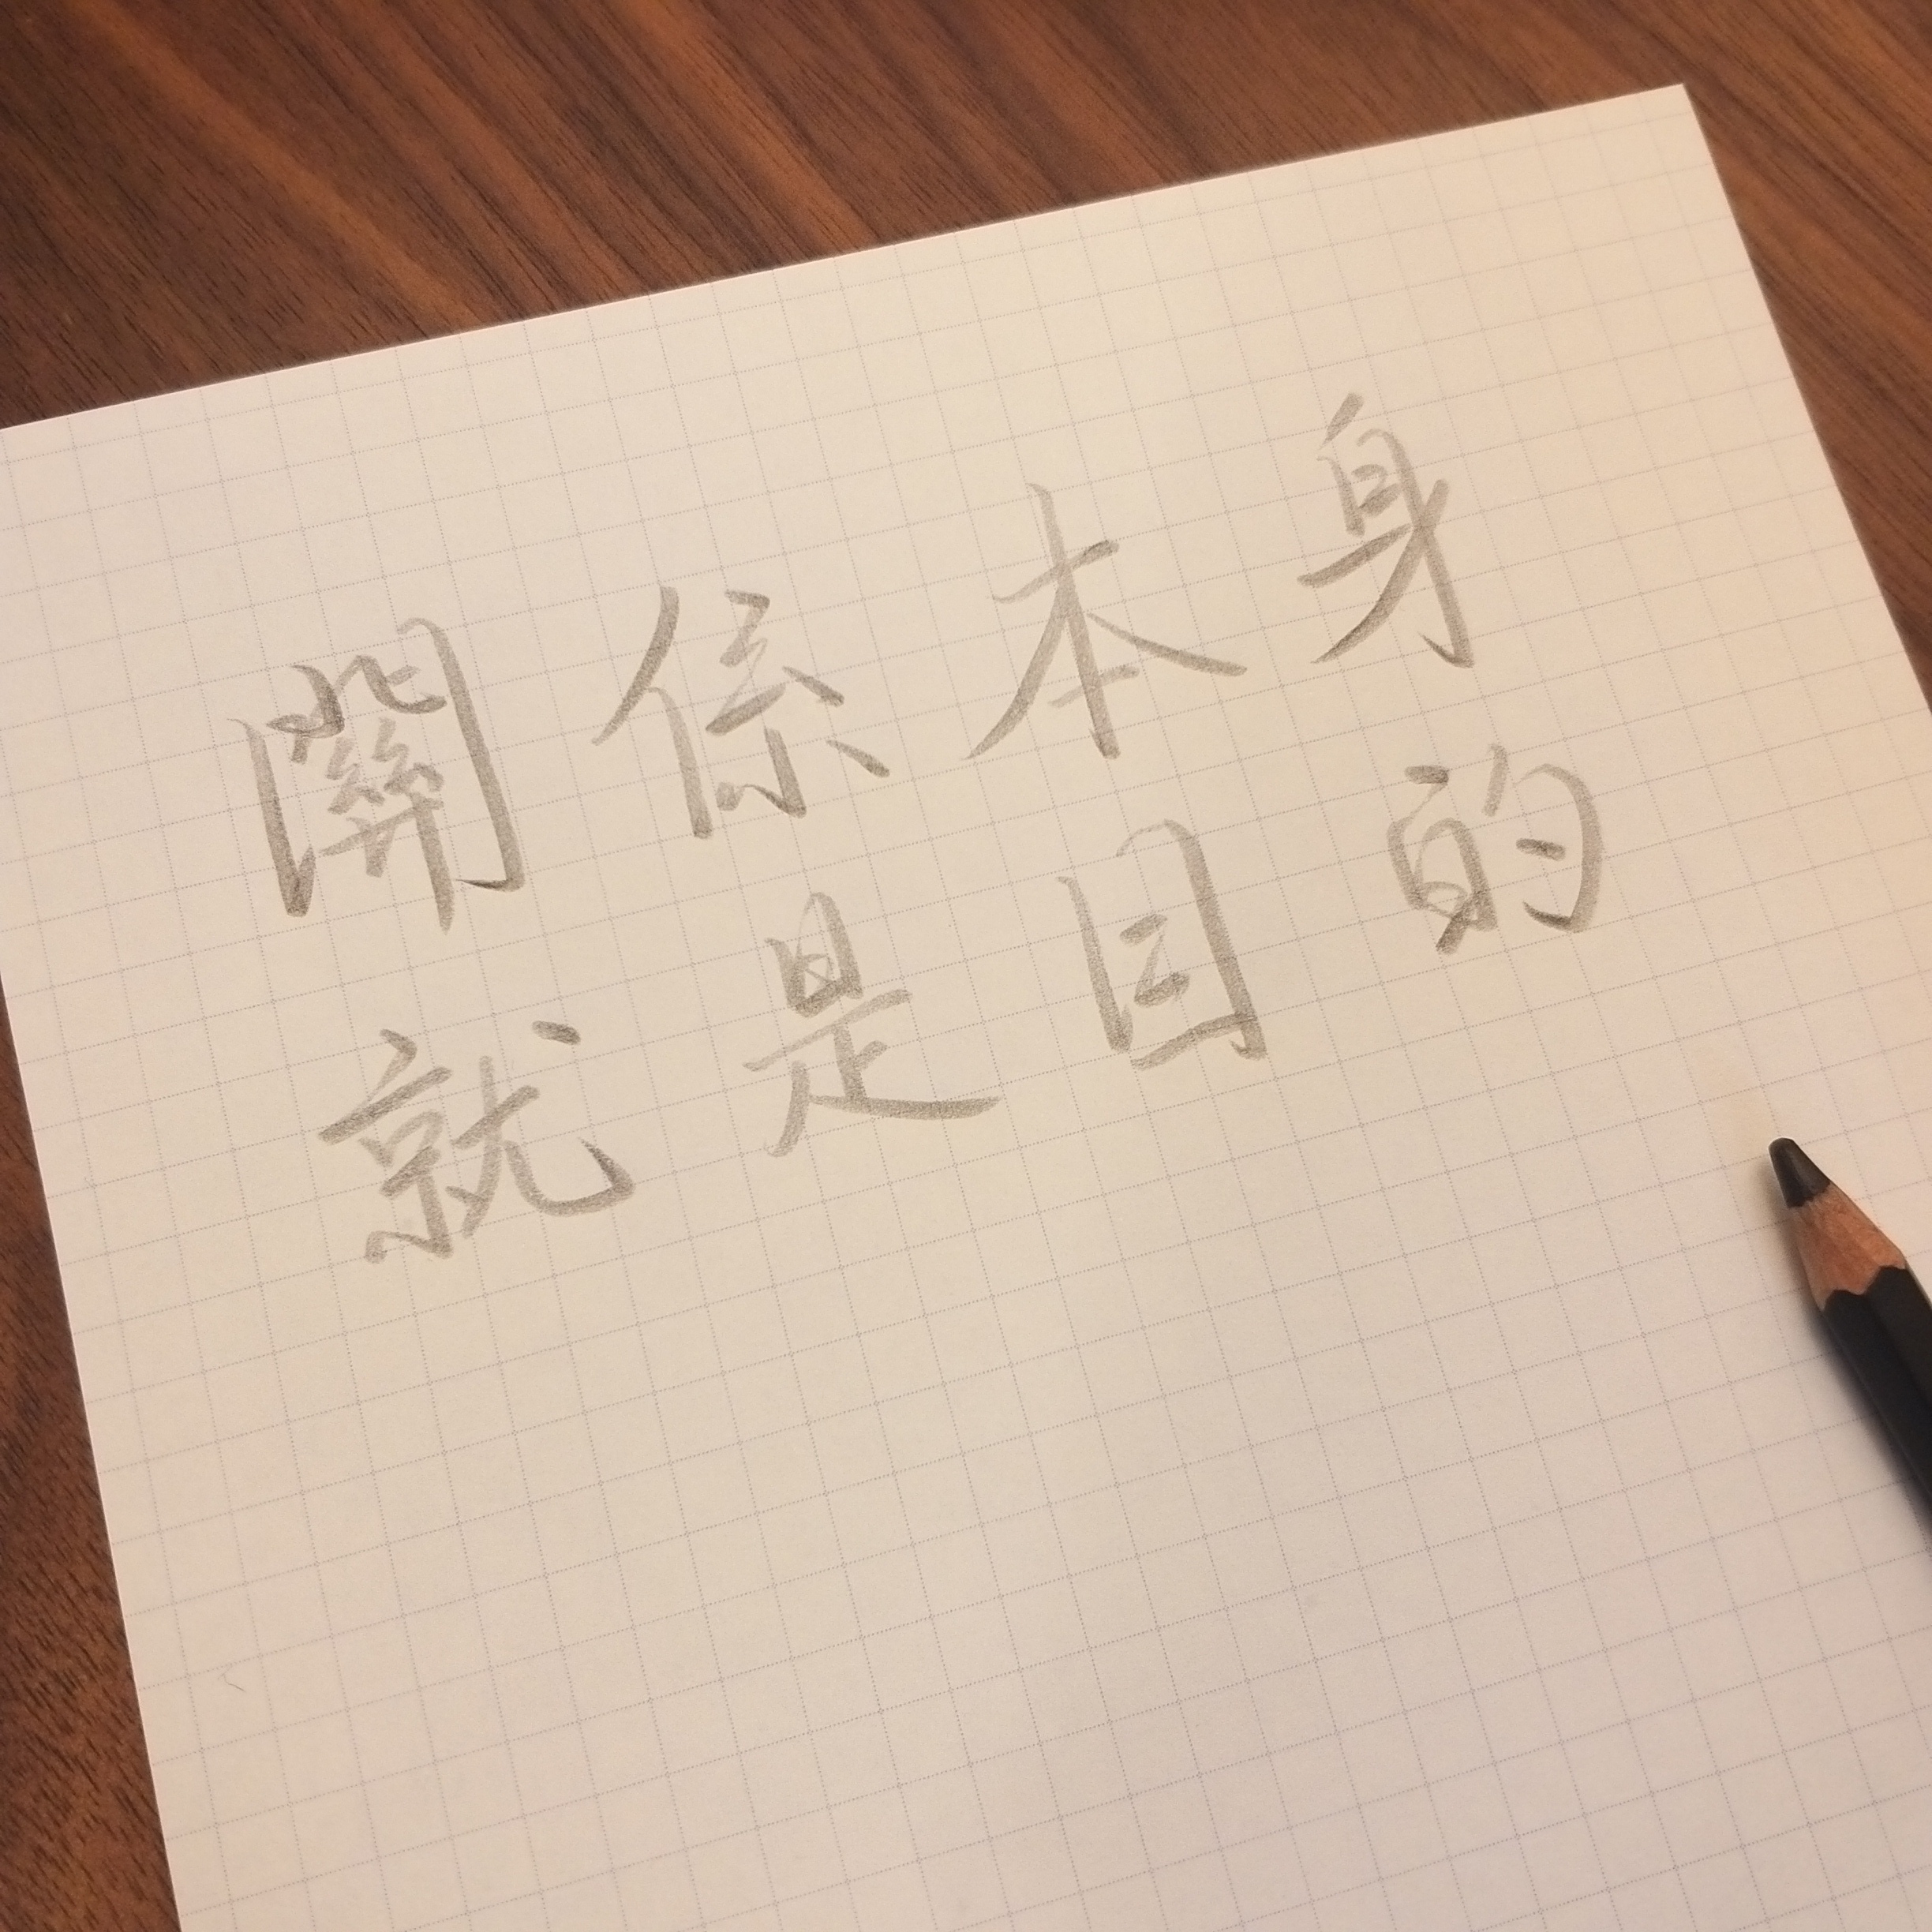 關係本身
就是目的